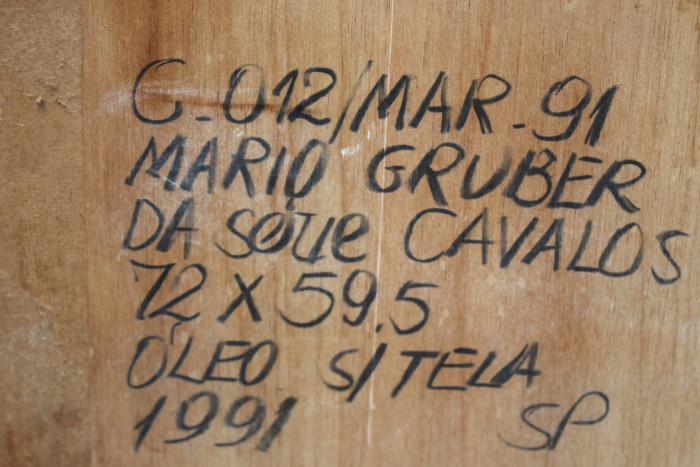 C-012/MAR-91
MARIO GRUBER
DA Série CAVALOS
72 X 59.5
ÓLEO S/TELA
1991 SP